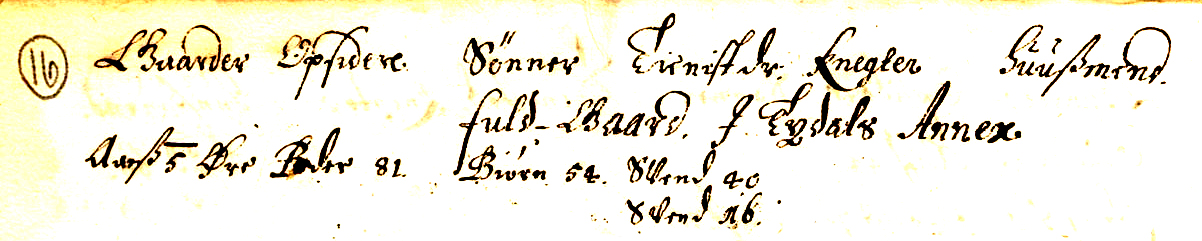 16 Gaarder Opsidere Sønner Tienistdr. Knegter Huußmend.
Fuld-Gaard. J Tydals Annex.
Aaß 5 Øre Peder 81. Biørn 54. Svend 40
Svend 16.